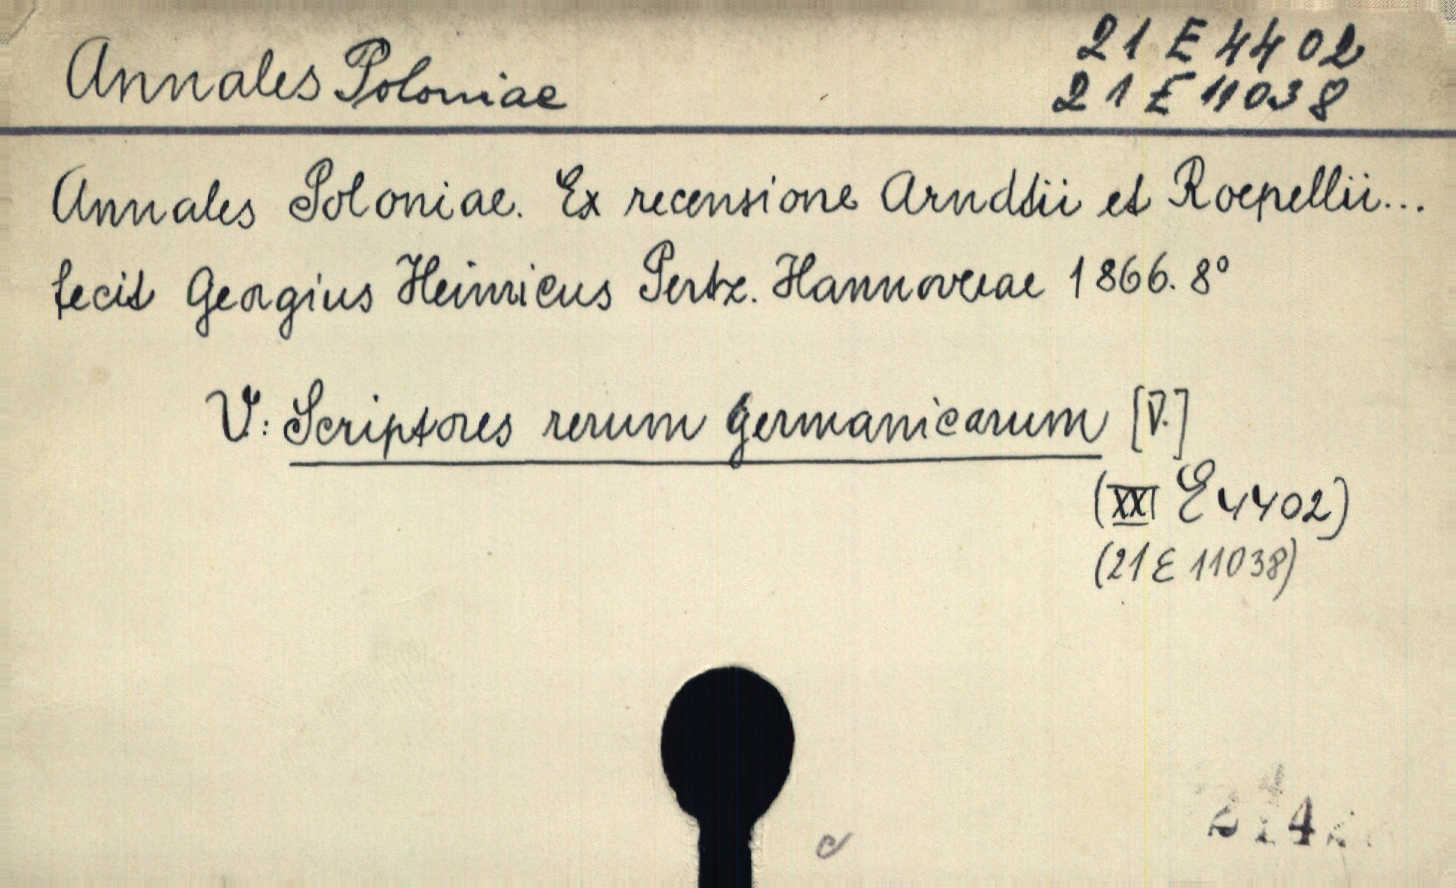 Annales Poloniae
21 E 4402
21 E 11038
Annales Poloniae. Ex recensione Arndtii et Roepellii...
fecit Georgius Heinricus Pertz. Hannoverae 1866. 8°
V: Scriptores rerum germanicarum [V.]
(XXI E 4402)
(21 E 11038)